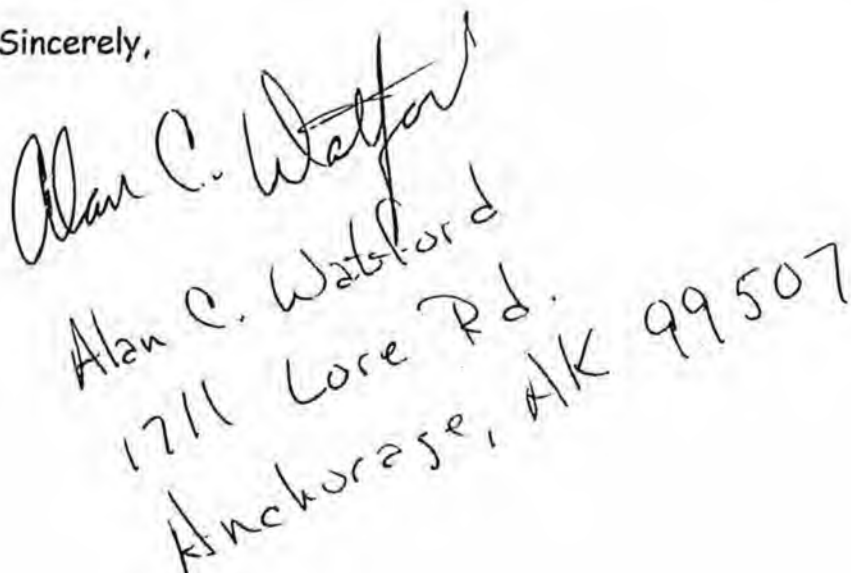 Sincerely,
Alan C. Watford
Alan C. Watford
1711 Lore Rd.
Anchorage, AK 99507